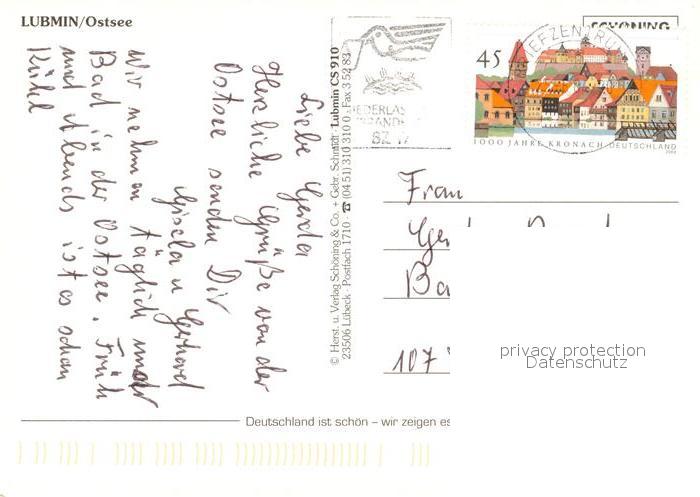 LUBMIN/Ostsee
Liebe Gerda
Herzliche Grüße von der
Ostsee senden Dir
Gisela u Gerhard
Wir nehmen täglich unser
Bad in der Ostsee. Früh
und Abends ist es schon
Kühl
© Herst. u. Verlag Schöning & Co. + Gebr. Schmidt · Lubmin CS 910
23506 Lübeck · Postfach 1710 · ☎ (04 51) 310 310 · Fax 3 52 83
SCHÖNING
BRIEFZENTRUM
45
1000 JAHRE KRONACH DEUTSCHLAND
Frau
Ger
Ba
107
privacy protection
Datenschutz
Deutschland ist schön – wir zeigen es